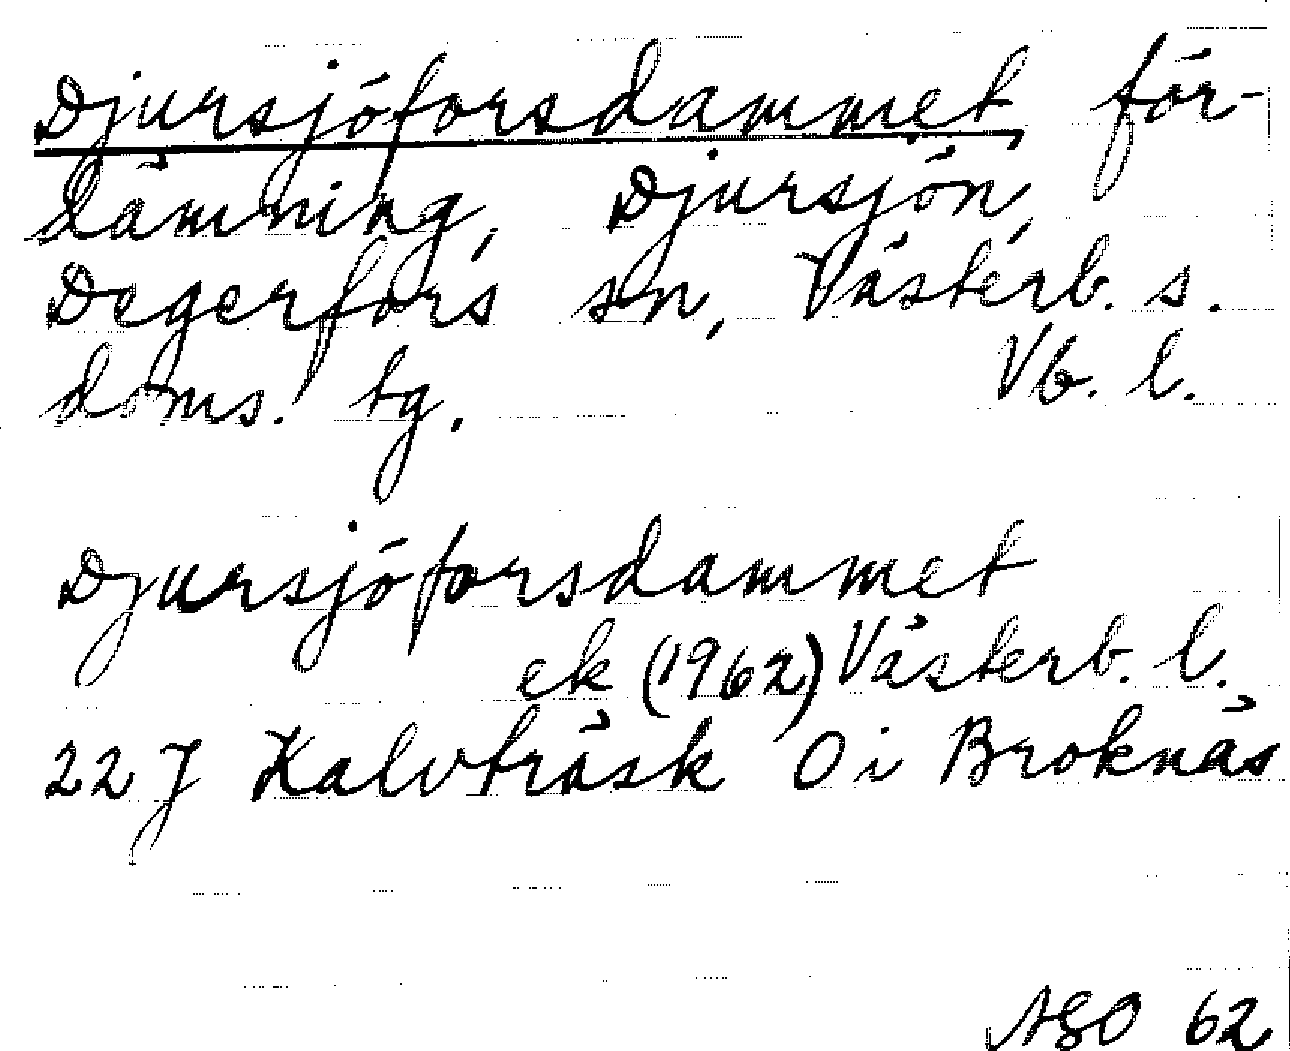 Djursjöforsdammet, för-
dämning, Djursjön,
Degerfors sn, Västerb. s.
doms. tg. Vb. l.
Djursjöforsdammet
ek (1962) Västerb. l.
22 J Kalvträsk O i Broknäs
62